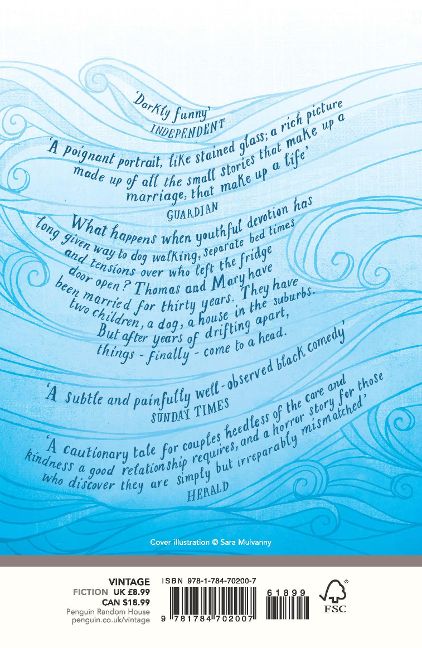 'Darkly funny'
INDEPENDENT
'A poignant portrait, like stained glass; a rich picture
made up of all the small stories that make up a
marriage, that make up a life'
GUARDIAN
What happens when youthful devotion has
long given way to dog walking, separate bed times
and tensions over who left the fridge
door open? Thomas and Mary have
been married for thirty years. They have
two children, a dog, a house in the suburbs.
But after years of drifting apart,
things - finally - come to a head.
'A subtle and painfully well-observed black comedy'
SUNDAY TIMES
'A cautionary tale for couples heedless of the care and
kindness a good relationship requires, and a horror story for those
who discover they are simply but irreparably mismatched'
HERALD
Cover illustration © Sara Mulvanny
VINTAGE
FICTION UK £8.99
CAN $18.99
Penguin Random House
penguin.co.uk/vintage
ISBN 978-1-784-70200-7
9 781784 702007
61899
FSC